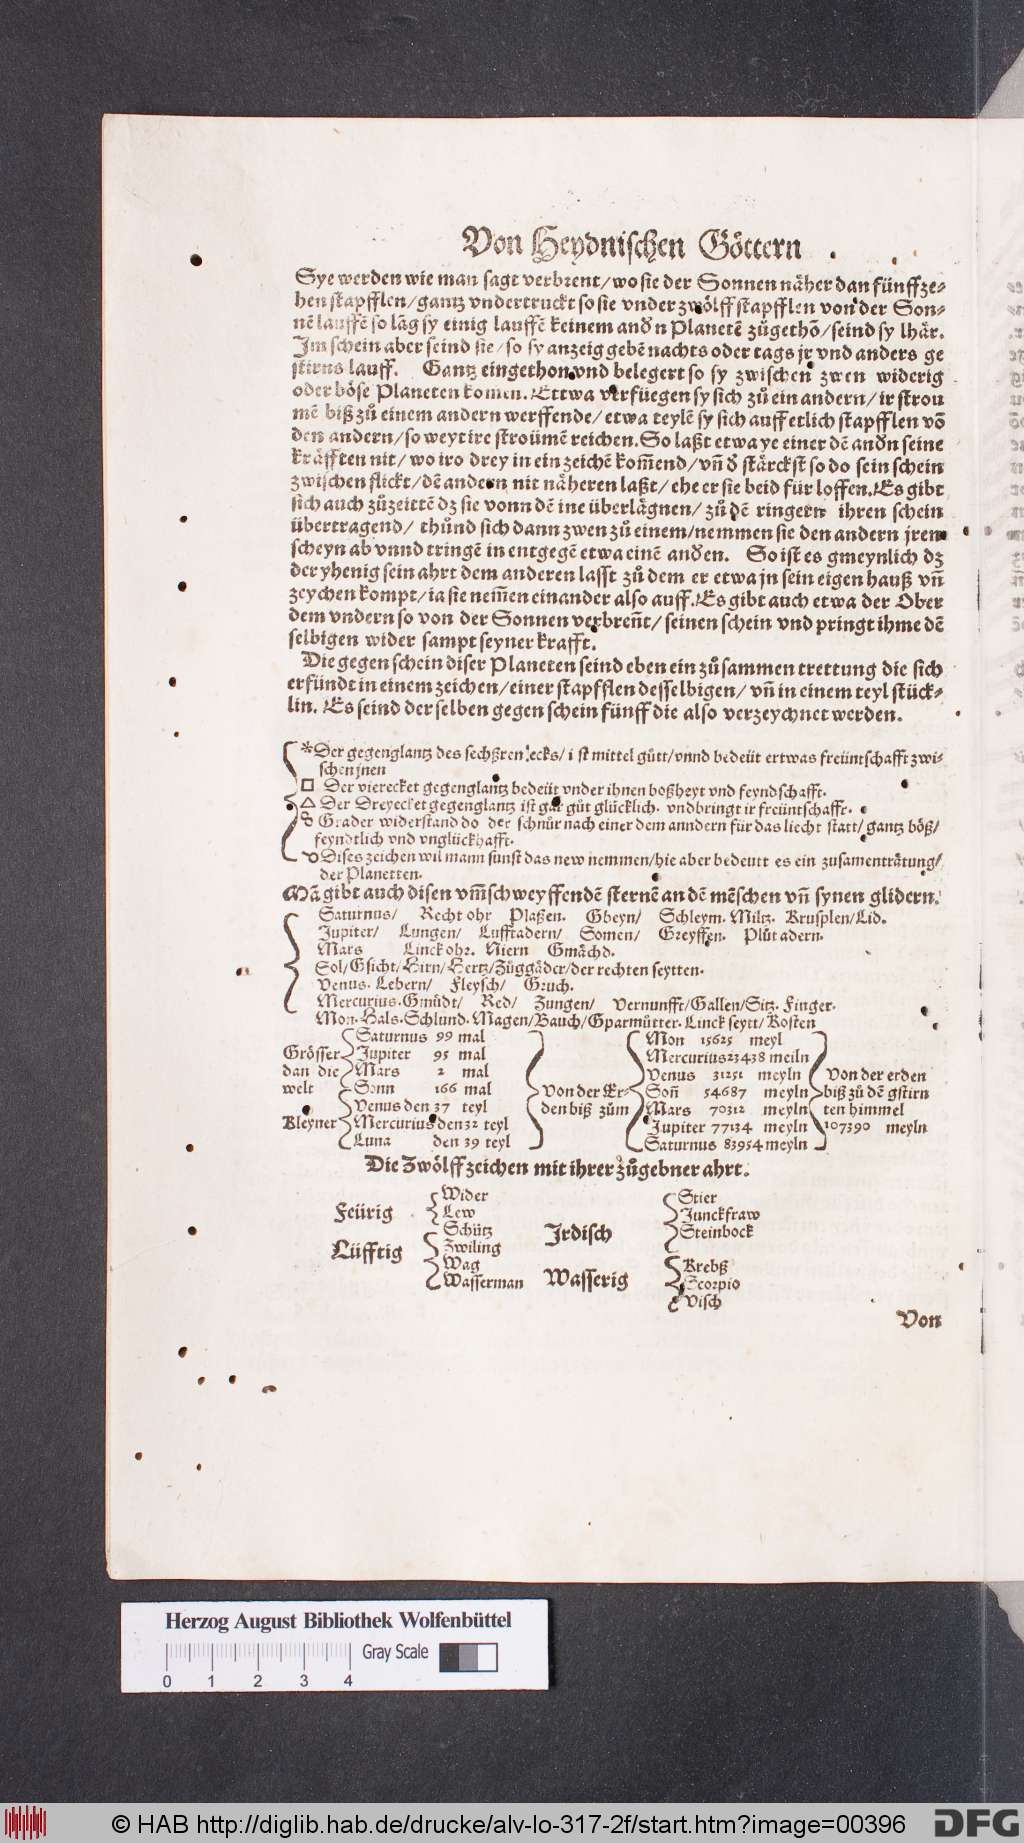 Von Heydnischen Göttern
Sye werden wie man sagt verbrent/ wo sie der Sonnen näher dan fünffze-
hen stapfflen/ gantz vndertruckt so sie vnder zwölff stapfflen von der Son-
nē lauffē so lāg sy einig lauffē keinem andn Planetē zůgethō/ seind sy lhär.
Im schein aber seind sie/ so sy anzeig gebē nachts oder tags jr vnd anders ge
stirns lauff. Gantz eingethon vnd belegert so sy zwischen zwen widerig
oder böse Planeten komen. Ettwa verfüegen sy sich zů ein andern/ ir strou
mē biß zů einem andern werffende/ etwa teylē sy sich auff etlich stapfflen vō
den andern/ so weyt ire stroümē reichen. So laßt etwa ye einer dē andn seine
kräfften nit/ wo iro drey in ein zeichē kom̄end/ vn̄ d stärckst so do sein schein
zwischen flickt/ dē andern nit näheren laßt/ ehe er sie beid für loffen. Es gibt
sich auch zůzeittē dz sie vonn dē ine überlāgnen/ zů dē ringern ihren schein
übertragend/ thůnd sich dann zwen zů einem/ nemmen sie den andern jren
scheyn ab vnnd tringē in entgegē etwa einē anden. So ist es gmeynlich dz
der yhenig sein ahrt dem anderen lasst zů dem er etwa jn sein eigen hauß vn̄
zeychen kompt/ ia sie nem̄en einander also auff. Es gibt auch etwa der Ober
dem vndern so von der Sonnen verbren̄t/ seinen schein vnd pringt ihme dē
selbigen wider sampt seyner krafft.
Die gegen schein diser Planeten seind eben ein zůsammen trettung die sich
erfündt in einem zeichen/ einer stapfflen desselbigen/ vn̄ in einem teyl stück-
lin. Es seind derselben gegen schein fünff die also verzeychnet werden.
* Der gegenglantz des sechßten ecks/ ist mittel gůtt/ vnnd bedeüt ettwas freüntschafft zwi-
schen jnen
□ Der vierecket gegenglantz bedeüt vnder ihnen boßheyt vnd feyndschafft.
△ Der Dreyecket gegenglantz ist gar gůt glücklich. vnd bringt ir freüntschafft.
☍ Grader widerstand do der schnůr nach einer dem anndern für das liecht statt/ gantz böß/
feyndtlich vnd vnglückhafft.
☌ Dises zeichen wil mann sunst das new nemmen/ hie aber bedeutt es ein zusamenträtung/
der Planetten.
Mā gibt auch disen vm̄schweyffendē sternē an dē mēschen vn̄ synen glidern.
Saturnus/ Recht ohr Plaßen. Gbeyn/ Schleym. Miltz. Krusplen/ Lid.
Jupiter/ Lungen/ Lufftadern/ Somen/ Greyffen. Plůt adern.
Mars Linck ohr. Niern Gmächd.
Sol/ Gsicht/ Hirn/ Hertz/ Züggäder/ der rechten seytten.
Venus. Lebern/ Fleysch/ Gruch.
Mercurius. Gmůdt/ Red/ Zungen/ Vernunfft/ Gallen/ Sitz. Finger.
Mon. Hals. Schlund. Magen/ Bauch/ Gparmütter. Linck seytt/ Kosten
Grösser dan die welt
Saturnus 99 mal
Jupiter 95 mal
Mars 2 mal
Sonn 166 mal
Kleyner
Venus den 37 teyl
Mercurius den 32 teyl
Luna den 39 teyl
Von der Er-
den biß zům
Mon 15625 meyl
Mercurius 23438 meiln
Venus 31251 meyln
Son̄ 54687 meyln
Mars 70312 meyln
Jupiter 77134 meyln
Saturnus 83954 meyln
Von der erden
biß zů dē gstirn
ten himmel
107390 meyln
Die Zwölff zeichen mit ihrer zůgebner ahrt.
Feürig
Wider
Lew
Schütz
Lüfftig
Zwiling
Wag
Wasserman
Irdisch
Stier
Junckfraw
Steinbock
Wasserig
Krebß
Scorpio
Visch
Von
Herzog August Bibliothek Wolfenbüttel
Gray Scale
0 1 2 3 4
© HAB http://diglib.hab.de/drucke/alv-lo-317-2f/start.htm?image=00396
DFG